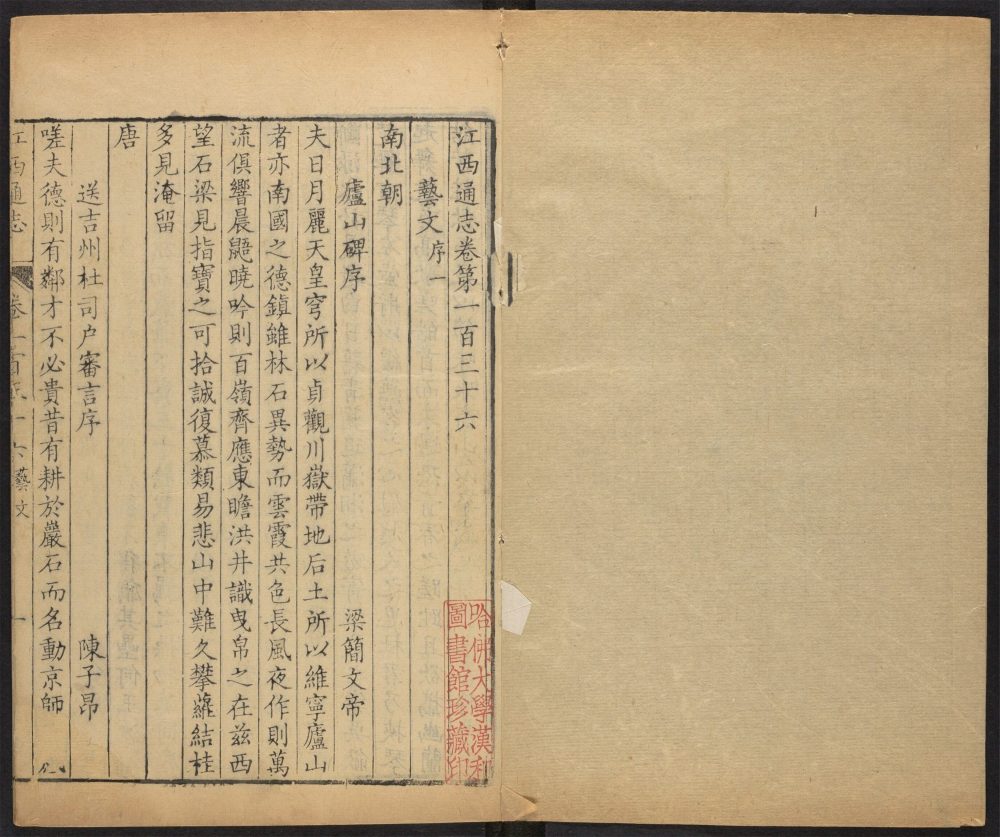 江西通志卷第一百三十六
藝文序一
南北朝
廬山碑序 梁簡文帝
夫日月麗天皇穹所以貞觀川嶽帶地后土所以維寧廬山
者亦南國之德鎮雖林石異勢而雲霞共色長風夜作則萬
流俱響晨鼯曉吟則百嶺齊應東瞻洪井識曳帛之在茲西
望石梁見指寶之可拾誠復慕類易悲山中難久攀蘿結桂
多見淹留
唐
送吉州杜司户審言序 陳子昂
嗟夫德則有鄰才不必貴昔有耕於巖石而名動京師
江西通志 卷一百三十六藝文 一
哈佛大學漢和
圖書館珍藏印